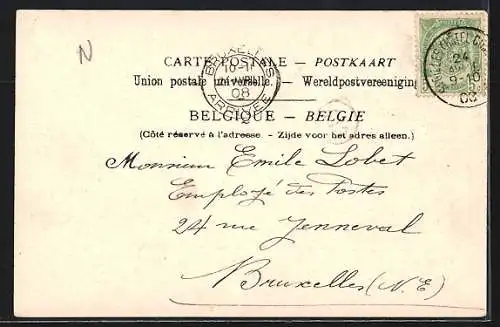 N
CARTE POSTALE — POSTKAART
Union postale universelle. — Wereldpostvereeniging
BRUXELLES
10-11
08
ARRIVÉE
24
9-10
08
BELGIQUE — BELGIE
(Côté réservé à l'adresse. - Zijde voor het adres alleen.)
Monsieur Emile Lobet
Employé des Postes
24 rue Jenneval
Bruxelles (N.E)